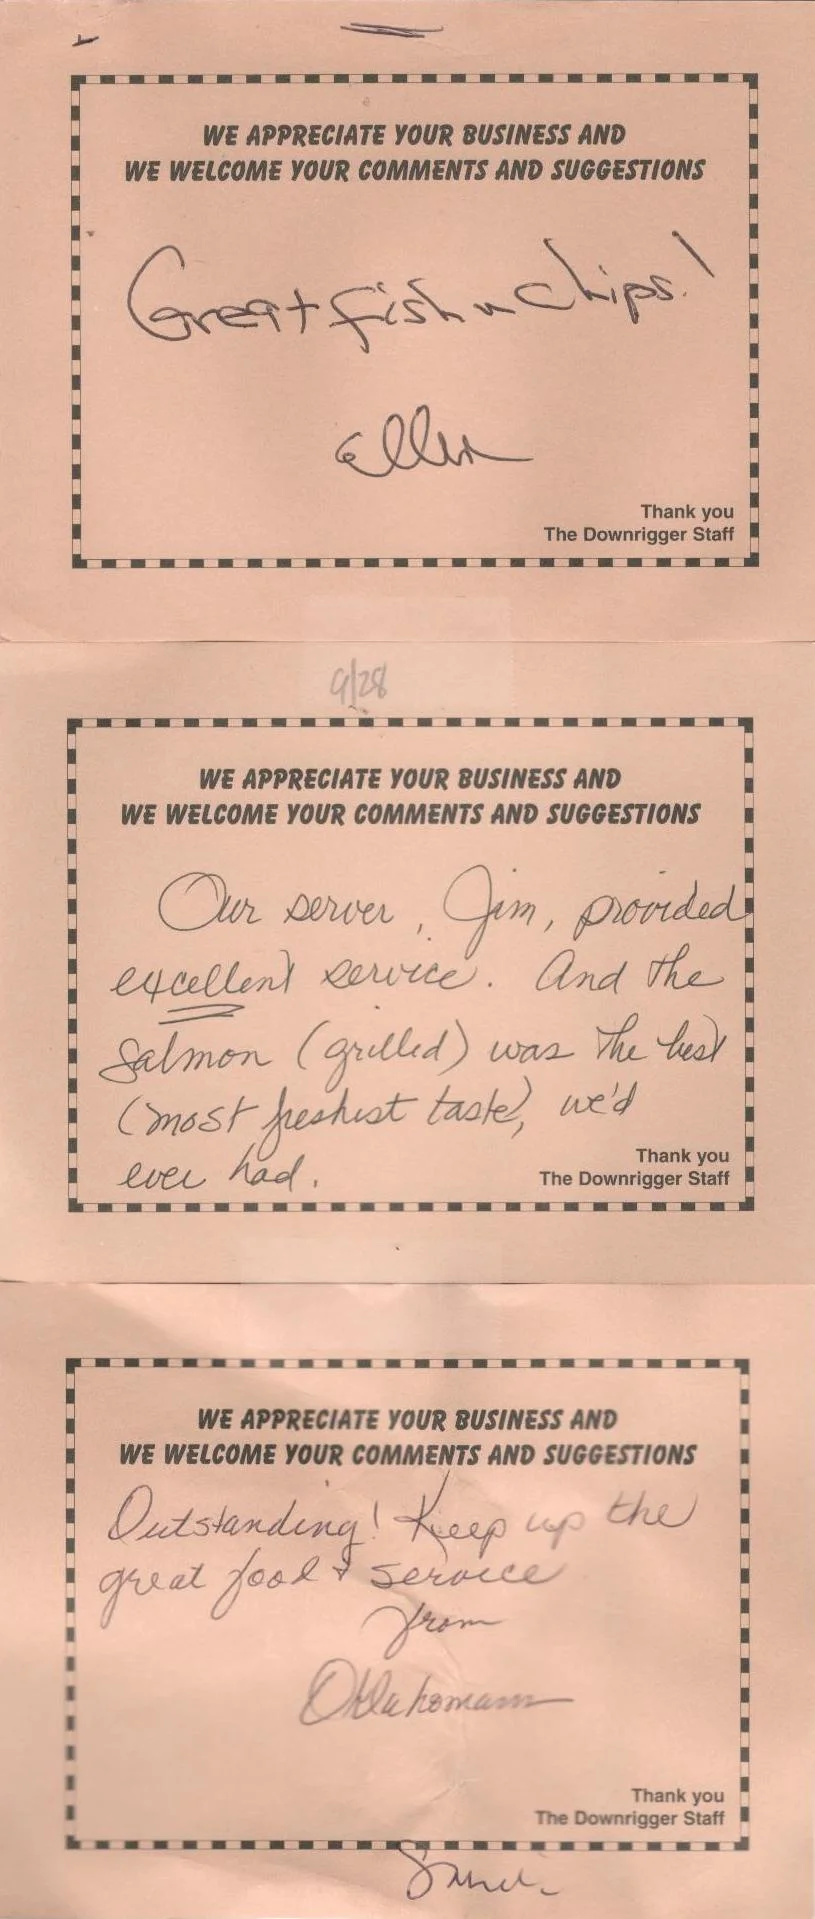 WE APPRECIATE YOUR BUSINESS AND
WE WELCOME YOUR COMMENTS AND SUGGESTIONS
Great fish n chips!
Ellen
Thank you
The Downrigger Staff
9/28
WE APPRECIATE YOUR BUSINESS AND
WE WELCOME YOUR COMMENTS AND SUGGESTIONS
Our server, Jim, provided
excellent service. And the
Salmon (grilled) was the best
(most freshest taste), we'd
ever had.
Thank you
The Downrigger Staff
WE APPRECIATE YOUR BUSINESS AND
WE WELCOME YOUR COMMENTS AND SUGGESTIONS
Outstanding! Keep up the
great food & service
from
Oklahomans
Thank you
The Downrigger Staff